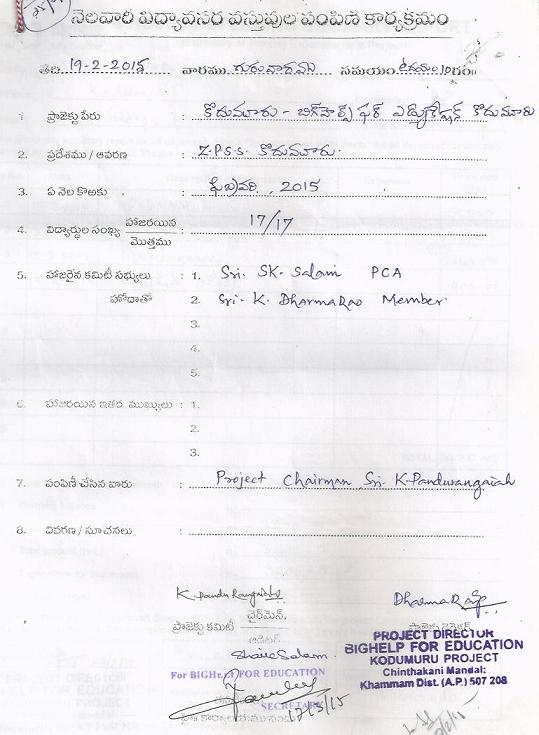 నెలవారీ విద్యావసర వస్తువుల పంపిణి కార్యక్రమం
తేది 19-2-2015 వారము గురువారము సమయం ఉదయం 10 గం॥
1 ప్రాజెక్టు పేరు : కొదుమూరు - బిగ్‌హెల్ప్ ఫర్ ఎడ్యుకేషన్ కొదుమూరు
2. ప్రదేశము / ఆవరణ : Z.P.S.S. కొదుమూరు.
3. ఏ నెల కొఱకు : ఫిబ్రవరి, 2015
4. విద్యార్థుల సంఖ్య హాజరయిన / మొత్తము : 17/17
5. హాజరైన కమిటీ సభ్యులు : 1. Sri. SK. Salam PCA
హోదాతో 2. Sri. K. DharmaRao Member.
3.
4.
5.
6. హాజరయిన ఇతర ముఖ్యులు : 1.
2.
3.
7. పంపిణీ చేసిన వారు : Project Chairman Sri. K. Pandurangaiah
8. వివరణ / సూచనలు :
K. Pandurangaiah
DharmaRao
ప్రాజెక్టు కమిటీ చైర్‌మెన్
ఆడిటర్
ప్రాజెక్టు డైరెక్టర్
Shaik Salam
PROJECT DIRECTOR
BIGHELP FOR EDUCATION
KODUMURU PROJECT
Chinthakani Mandal:
Khammam Dist. (A.P.) 507 208
For BIGHELP FOR EDUCATION
SECRETARY
12/3/15